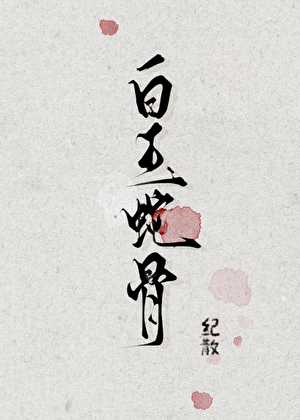 白玉蛇骨
纪散